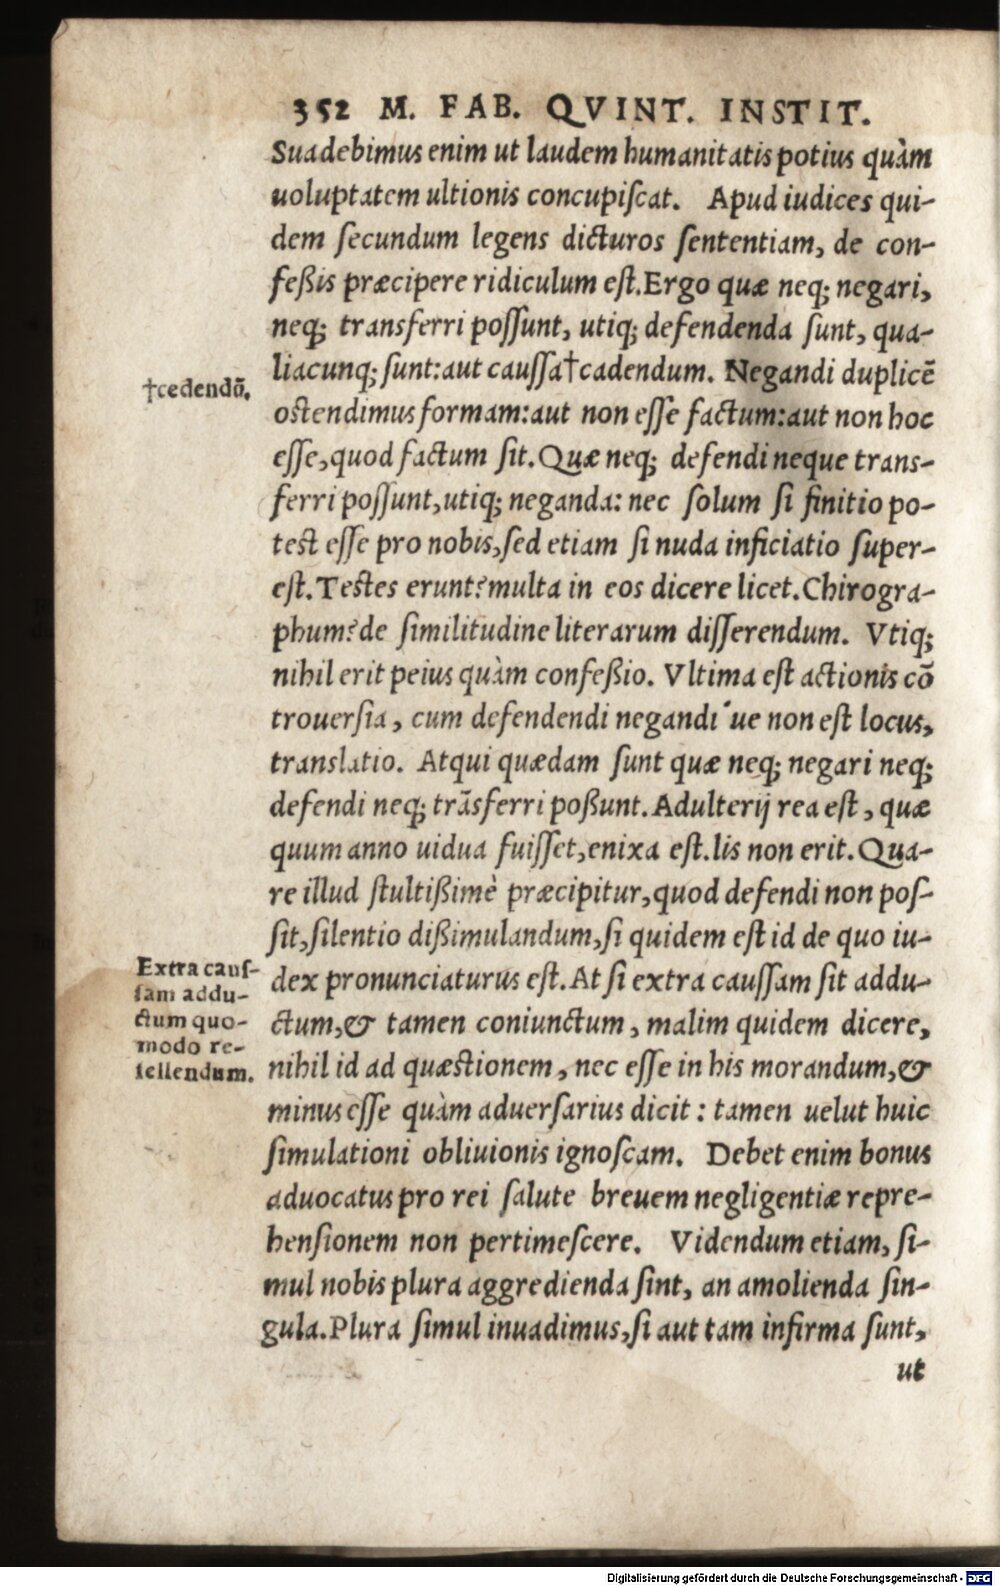 352 M. FAB. QVINT. INSTIT.
Suadebimus enim ut laudem humanitatis potius quàm
uoluptatem ultionis concupiſcat. Apud iudices qui-
dem ſecundum legens dicturos ſententiam, de con-
feßis præcipere ridiculum eſt. Ergo quæ neq; negari,
neq; transferri poſſunt, utiq; defendenda ſunt, qua-
liacunq; ſunt: aut cauſſa †cadendum. Negandi duplicē
†cedendō.
oſtendimus formam: aut non eſſe factum: aut non hoc
eſſe, quod factum ſit. Quæ neq; defendi neque trans-
ferri poſſunt, utiq; neganda: nec ſolum ſi finitio po-
teſt eſſe pro nobis, ſed etiam ſi nuda inficiatio ſuper-
eſt. Teſtes erunt? multa in eos dicere licet. Chirogra-
phum? de ſimilitudine literarum diſſerendum. Vtiq;
nihil erit peius quàm confeßio. Vltima eſt actionis cō
trouerſia, cum defendendi negandi´ue non eſt locus,
translatio. Atqui quædam ſunt quæ neq; negari neq;
defendi neq; trāsferri poßunt. Adulterij rea eſt, quæ
quum anno uidua fuiſſet, enixa eſt. lis non erit. Qua-
re illud ſtultißimè præcipitur, quod defendi non poſ-
ſit, ſilentio dißimulandum, ſi quidem eſt id de quo iu-
dex pronunciaturus eſt. At ſi extra cauſſam ſit addu-
ctum, & tamen coniunctum, malim quidem dicere,
nihil id ad quæſtionem, nec eſſe in his morandum, &
Extra cauſ-
ſam addu-
ctum quo-
modo re-
fellendum.
minus eſſe quàm aduerſarius dicit: tamen uelut huic
ſimulationi obliuionis ignoſcam. Debet enim bonus
aduocatus pro rei ſalute breuem negligentiæ repre-
henſionem non pertimeſcere. Videndum etiam, ſi-
mul nobis plura aggredienda ſint, an amolienda ſin-
gula. Plura ſimul inuadimus, ſi aut tam infirma ſunt,
ut
Digitalisierung gefördert durch die Deutsche Forschungsgemeinschaft - DFG